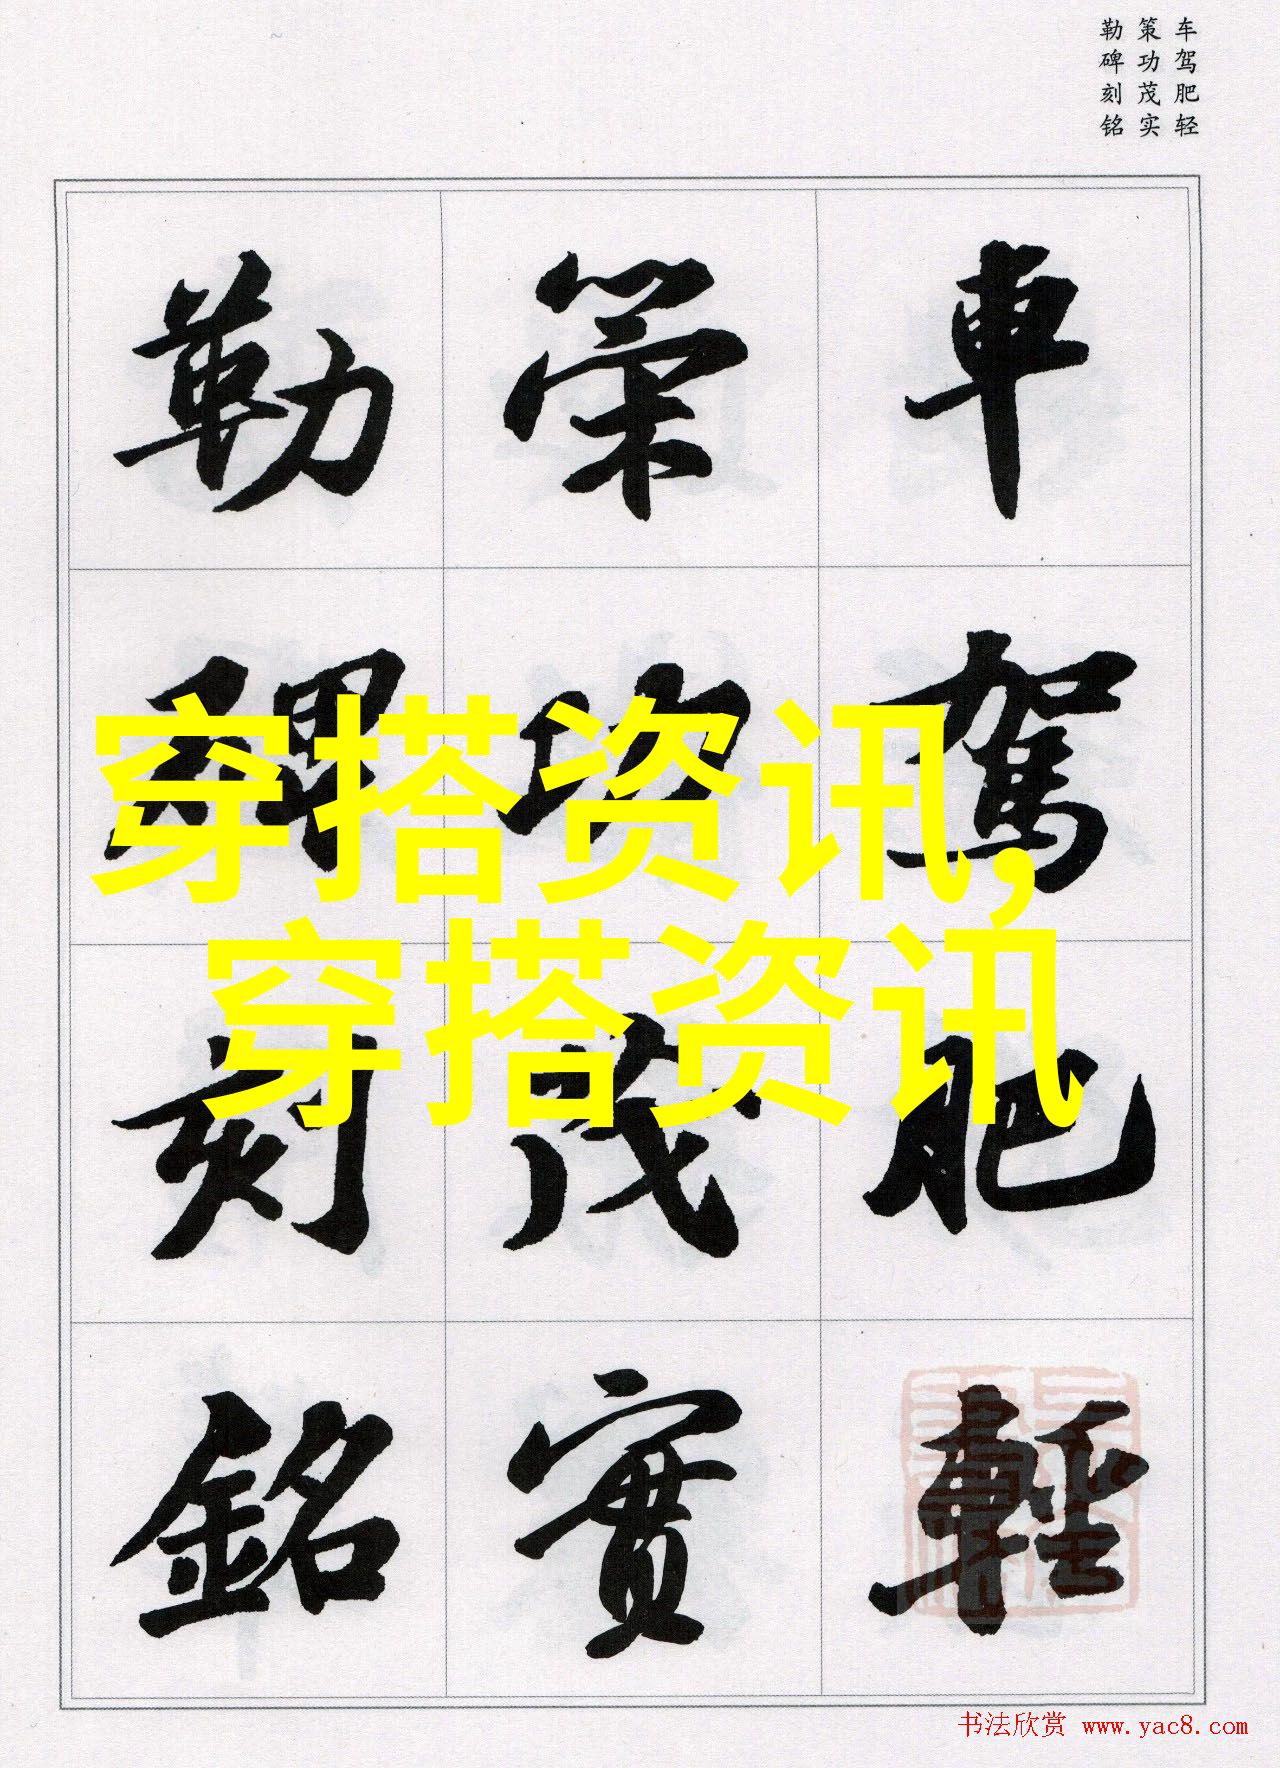 车驾肥轻
策功茂实
勒碑刻铭
車駕肥輕
策功茂實
勒碑刻銘
穿搭资讯,
穿搭资讯
书法欣赏 www.yac8.com